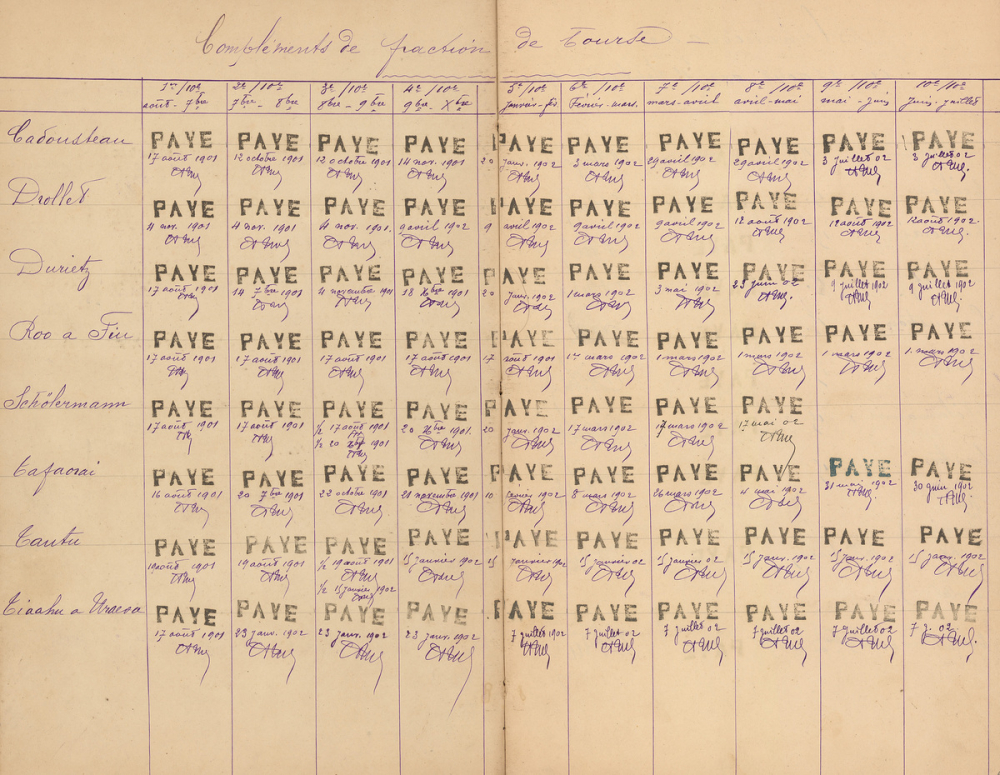 Compléments de fraction de bourse —
1er/10e 2e/10e 3e/10e 4e/10e 5e/10e 6e/10e 7e/10e 8e/10e 9e/10e 10e/10e
août - 7bre 7bre - 8bre 8bre - 9bre 9bre Xbre janvier - fév. Février - mars. mars - avril avril - mai mai - juin juin - juillet
Cadousteau PAYE PAYE PAYE PAYE PAYE PAYE PAYE PAYE PAYE PAYE
17 août 1901 12 octobre 1901 12 octobre 1901 14 nov. 1901 20 janv. 1902 3 mars 1902 29 avril 1902 29 avril 1902 3 juillet 02 3 juillet 02
Drollet PAYE PAYE PAYE PAYE PAYE PAYE PAYE PAYE PAYE PAYE
4 nov. 1901 4 nov. 1901 4 nov. 1901. 9 avril 1902 9 avril 1902 9 avril 1902 9 avril 1902 12 août 1902 12 août 1902 12 août 1902.
Durietz PAYE PAYE PAYE PAYE PAYE PAYE PAYE PAYE PAYE PAYE
17 août 1901 14 7bre 1901 4 novembre 1901 18 Xbre 1901 20 janv. 1902 1 mars 1902 3 mai 1902 23 juin 02 9 juillet 1902 9 juillet 1902
Roo a Fiu PAYE PAYE PAYE PAYE PAYE PAYE PAYE PAYE PAYE PAYE
17 août 1901 17 août 1901 17 août 1901 17 août 1901 17 août 1901 1er mars 1902 1 mars 1902 1 mars 1902 1 mars 1902 1 mars 1902
Schölermann PAYE PAYE PAYE PAYE PAYE PAYE PAYE PAYE
17 août 1901 17 août 1901 1/2 17 août 1901 20 Xbre 1901. 20 janv. 1902 17 mars 1902 17 mars 1902 17 mai 02
1/2 20 1901
Tafaorai PAYE PAYE PAYE PAYE PAYE PAYE PAYE PAYE PAYE PAYE
16 août 1901 20 7bre 1901 22 octobre 1901 21 novembre 1901 10 février 1902 8 mars 1902 26 mars 1902 4 mai 1902 31 mai 1902 30 juin 1902
Tautu PAYE PAYE PAYE PAYE PAYE PAYE PAYE PAYE PAYE PAYE
19 août 1901 19 août 1901 1/2 19 août 1901 15 janvier 1902 15 janvier 1902 15 janv. 1902 15 janv. 1902 15 janv. 1902 15 janv. 1902 15 janv. 1902
1/2 15 janvier 1902
Tiaahu a Uraeva PAYE PAYE PAYE PAYE PAYE PAYE PAYE PAYE PAYE PAYE
17 août 1901 23 janv. 1902 23 janv. 1902 23 janv. 1902 7 juillet 1902 7 juillet 02 7 juillet 02 7 juillet 02 7 juillet 02 7 j. 02